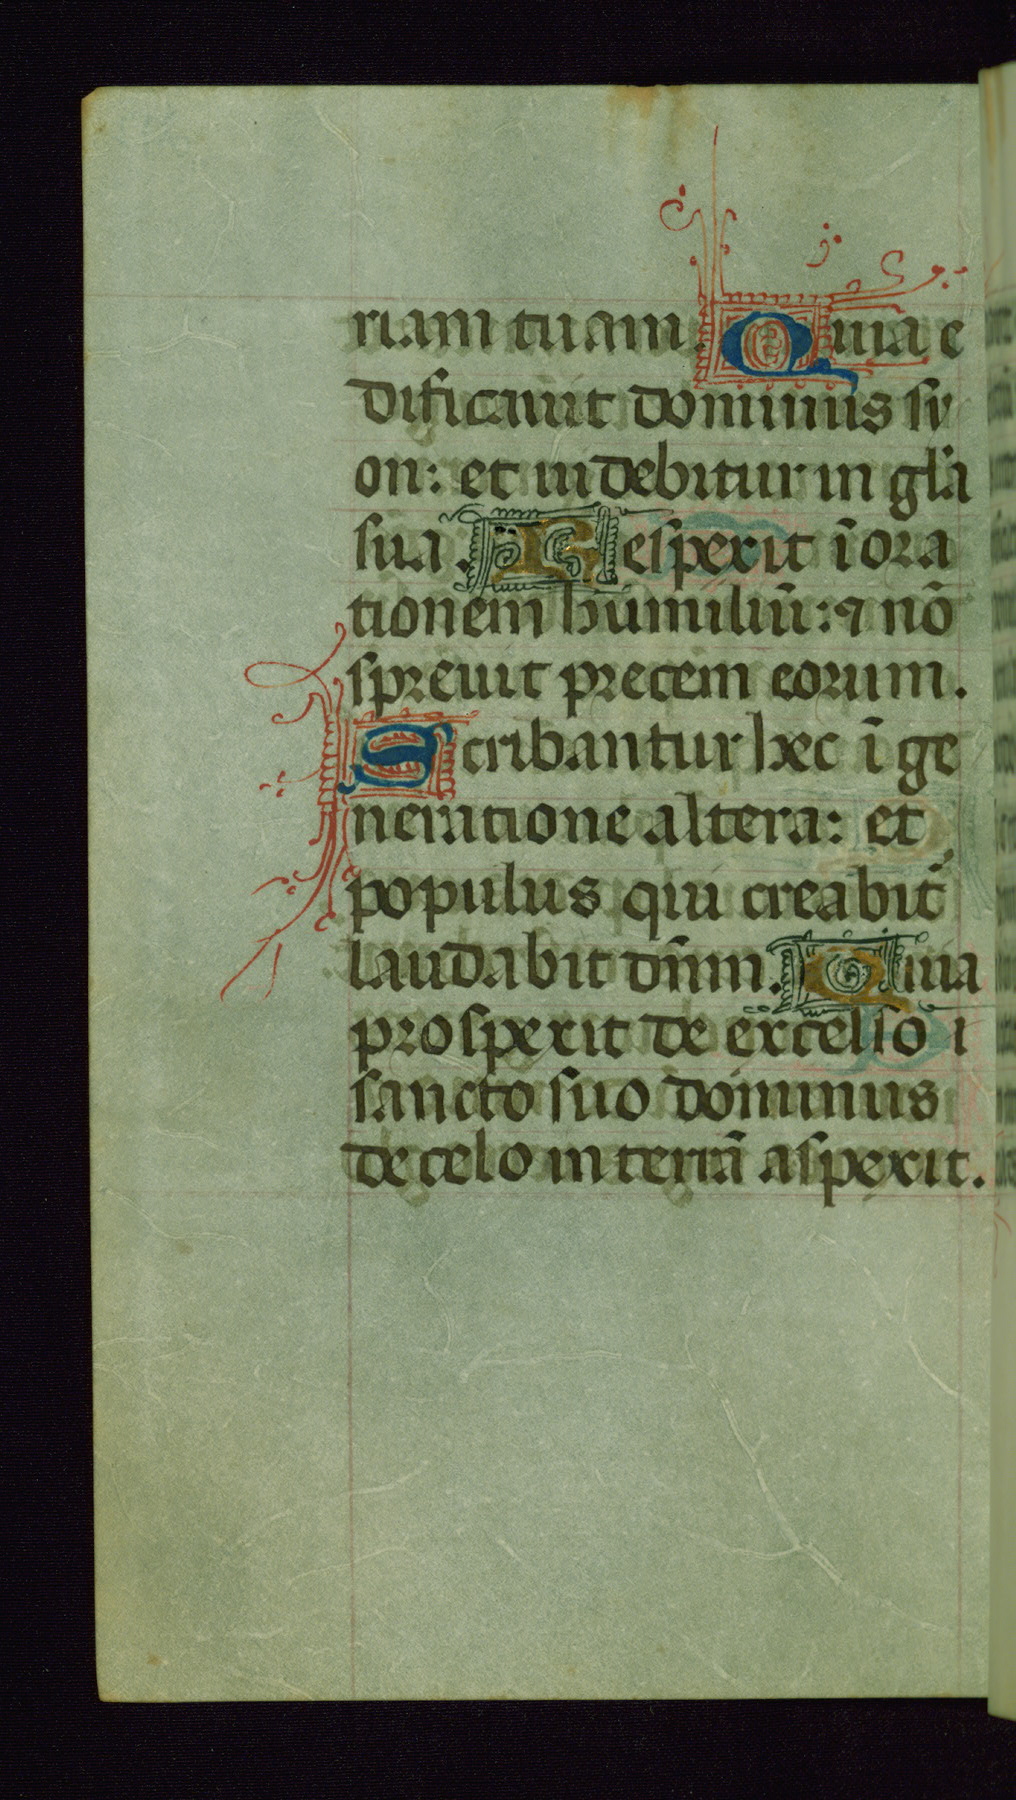 riam tuam. Quia e
dificauit dominus sy
on: et uidebitur in gl'a
sua. Respexit ī ora
tionem humiliū: ⁊ nō
spreuit precem eorum.
Scribantur hec ī ge
neratione altera: et
populus qui creabit᷑
laudabit dn̄m. Quia
prospexit de excelso i
sancto suo dominus
de celo in terrā aspexit.